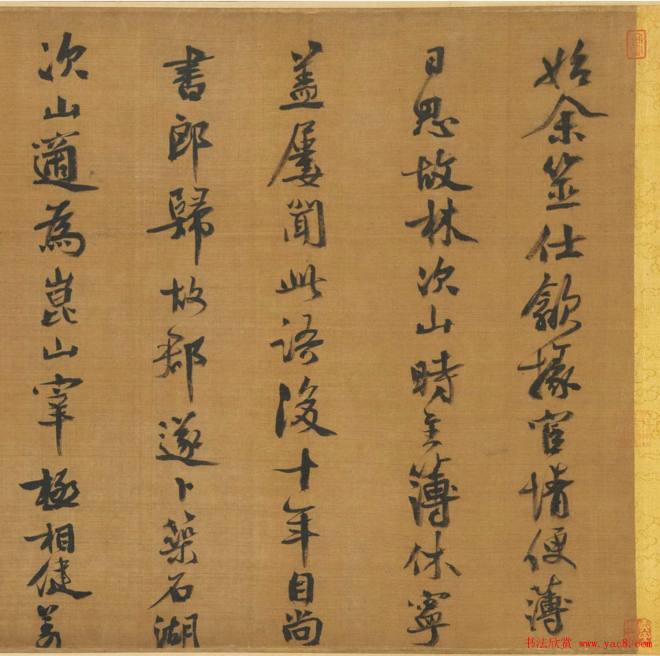 始余筮仕歙掾宦情便薄
日思故林次山時主簿休寧
蓋屢聞此語後十年自尚
書郎歸故郡遂卜築石湖
次山適為崑山宰極相健羡
书法欣赏 www.yac8.com